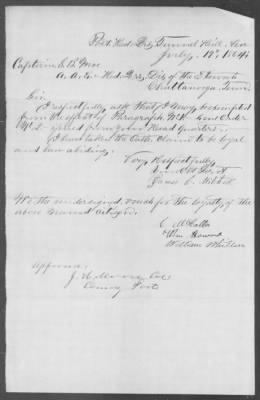 Post Hd Qrs Tunnel Hill, Geo
July 12th 1864
Captain S. B. Moe
A. A. G. Hd Qrs Dis of the Etowah
Chattanooga Tenn
Sir
I respectfully ask that I may be exempted
from the effect of Paragraph
No issued from your Head Quarters
I have taken the Oath, claim to be loyal
and law abiding.
Very Respectfully
Your Obt Sevt
James C.
We the undersigned vouch for the loyalty of the
above named
C McCalla
Wm Howard
William
Approved
J. Col
Comdg Post